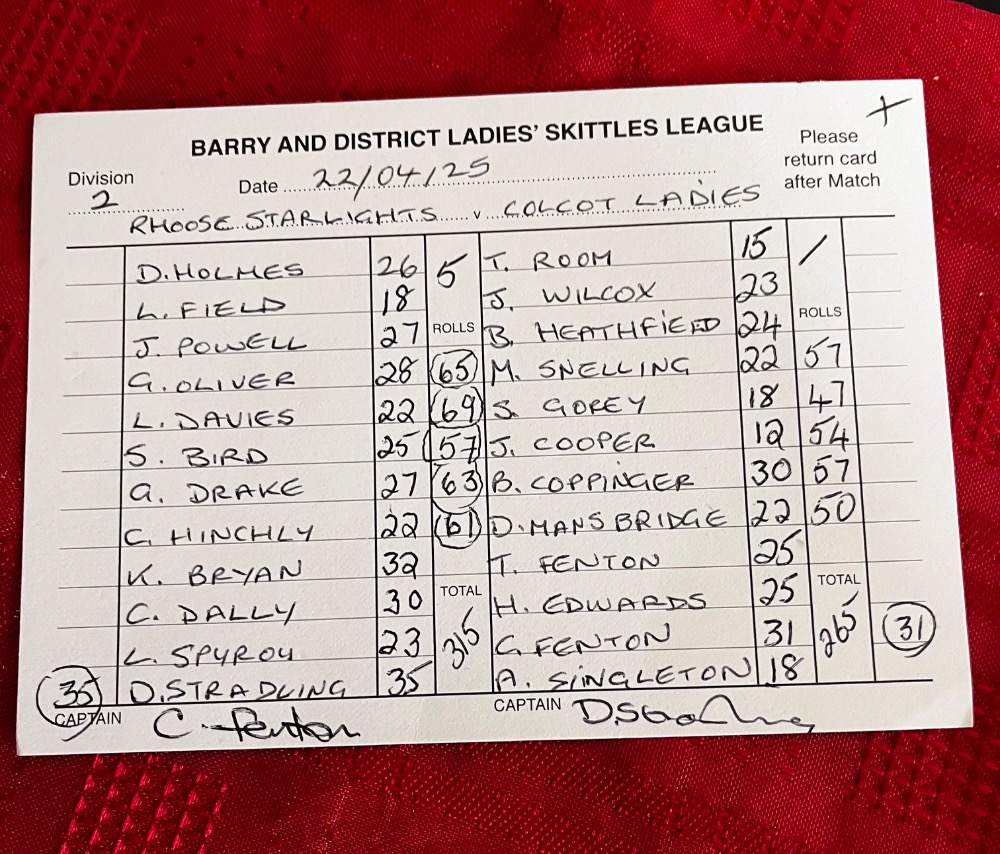 BARRY AND DISTRICT LADIES' SKITTLES LEAGUE
Please return card after Match
Division 2
Date 22/04/25
RHOOSE STARLIGHTS v COLCOT LADIES
D. HOLMES 26 5 T. ROOM 15 /
L. FIELD 18 J. WILCOX 23
J. POWELL 27 ROLLS B. HEATHFIELD 24 ROLLS
G. OLIVER 28 65 M. SNELLING 22 57
L. DAVIES 22 69 S. GOREY 18 47
S. BIRD 25 57 J. COOPER 12 54
A. DRAKE 27 63 B. COPPINGER 30 57
C. HINCHLY 22 61 D. MANSBRIDGE 22 50
K. BRYAN 32 T. FENTON 25
C. DALLY 30 TOTAL H. EDWARDS 25 TOTAL
L. SPYROU 23 315 C. FENTON 31 265 31
35 D. STRADLING 35 A. SINGLETON 18
CAPTAIN C. Fenton CAPTAIN